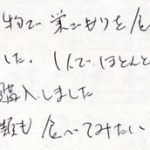 物で巣ごもりを
した。1人でほとんど
購入しました
類も食べてみたい